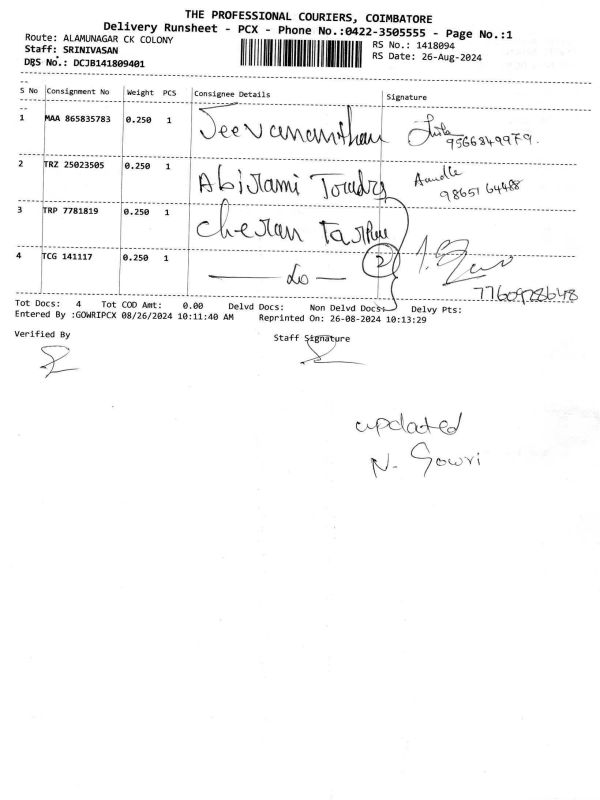 THE PROFESSIONAL COURIERS, COIMBATORE
Delivery Runsheet - PCX - Phone No.:0422-3505555 - Page No.:1
Route: ALAMUNAGAR CK COLONY
Staff: SRINIVASAN
DRS No.: DCJB141809401
RS No.: 1418094
RS Date: 26-Aug-2024
S No Consignment No Weight PCS Consignee Details Signature
1 MAA 865835783 0.250 1 Jeevananthan 9566849979.
2 TRZ 25023505 0.250 1 Abirami 9865764488
3 TRP 7781819 0.250 1 Cheran
4 TCG 141117 0.250 1 — do — 2
Tot Docs: 4 Tot COD Amt: 0.00 Delvd Docs: Non Delvd Docs: Delvy Pts:
Entered By :GOWRIPCX 08/26/2024 10:11:40 AM Reprinted On: 26-08-2024 10:13:29
Verified By Staff Signature
updated
N. Gowri